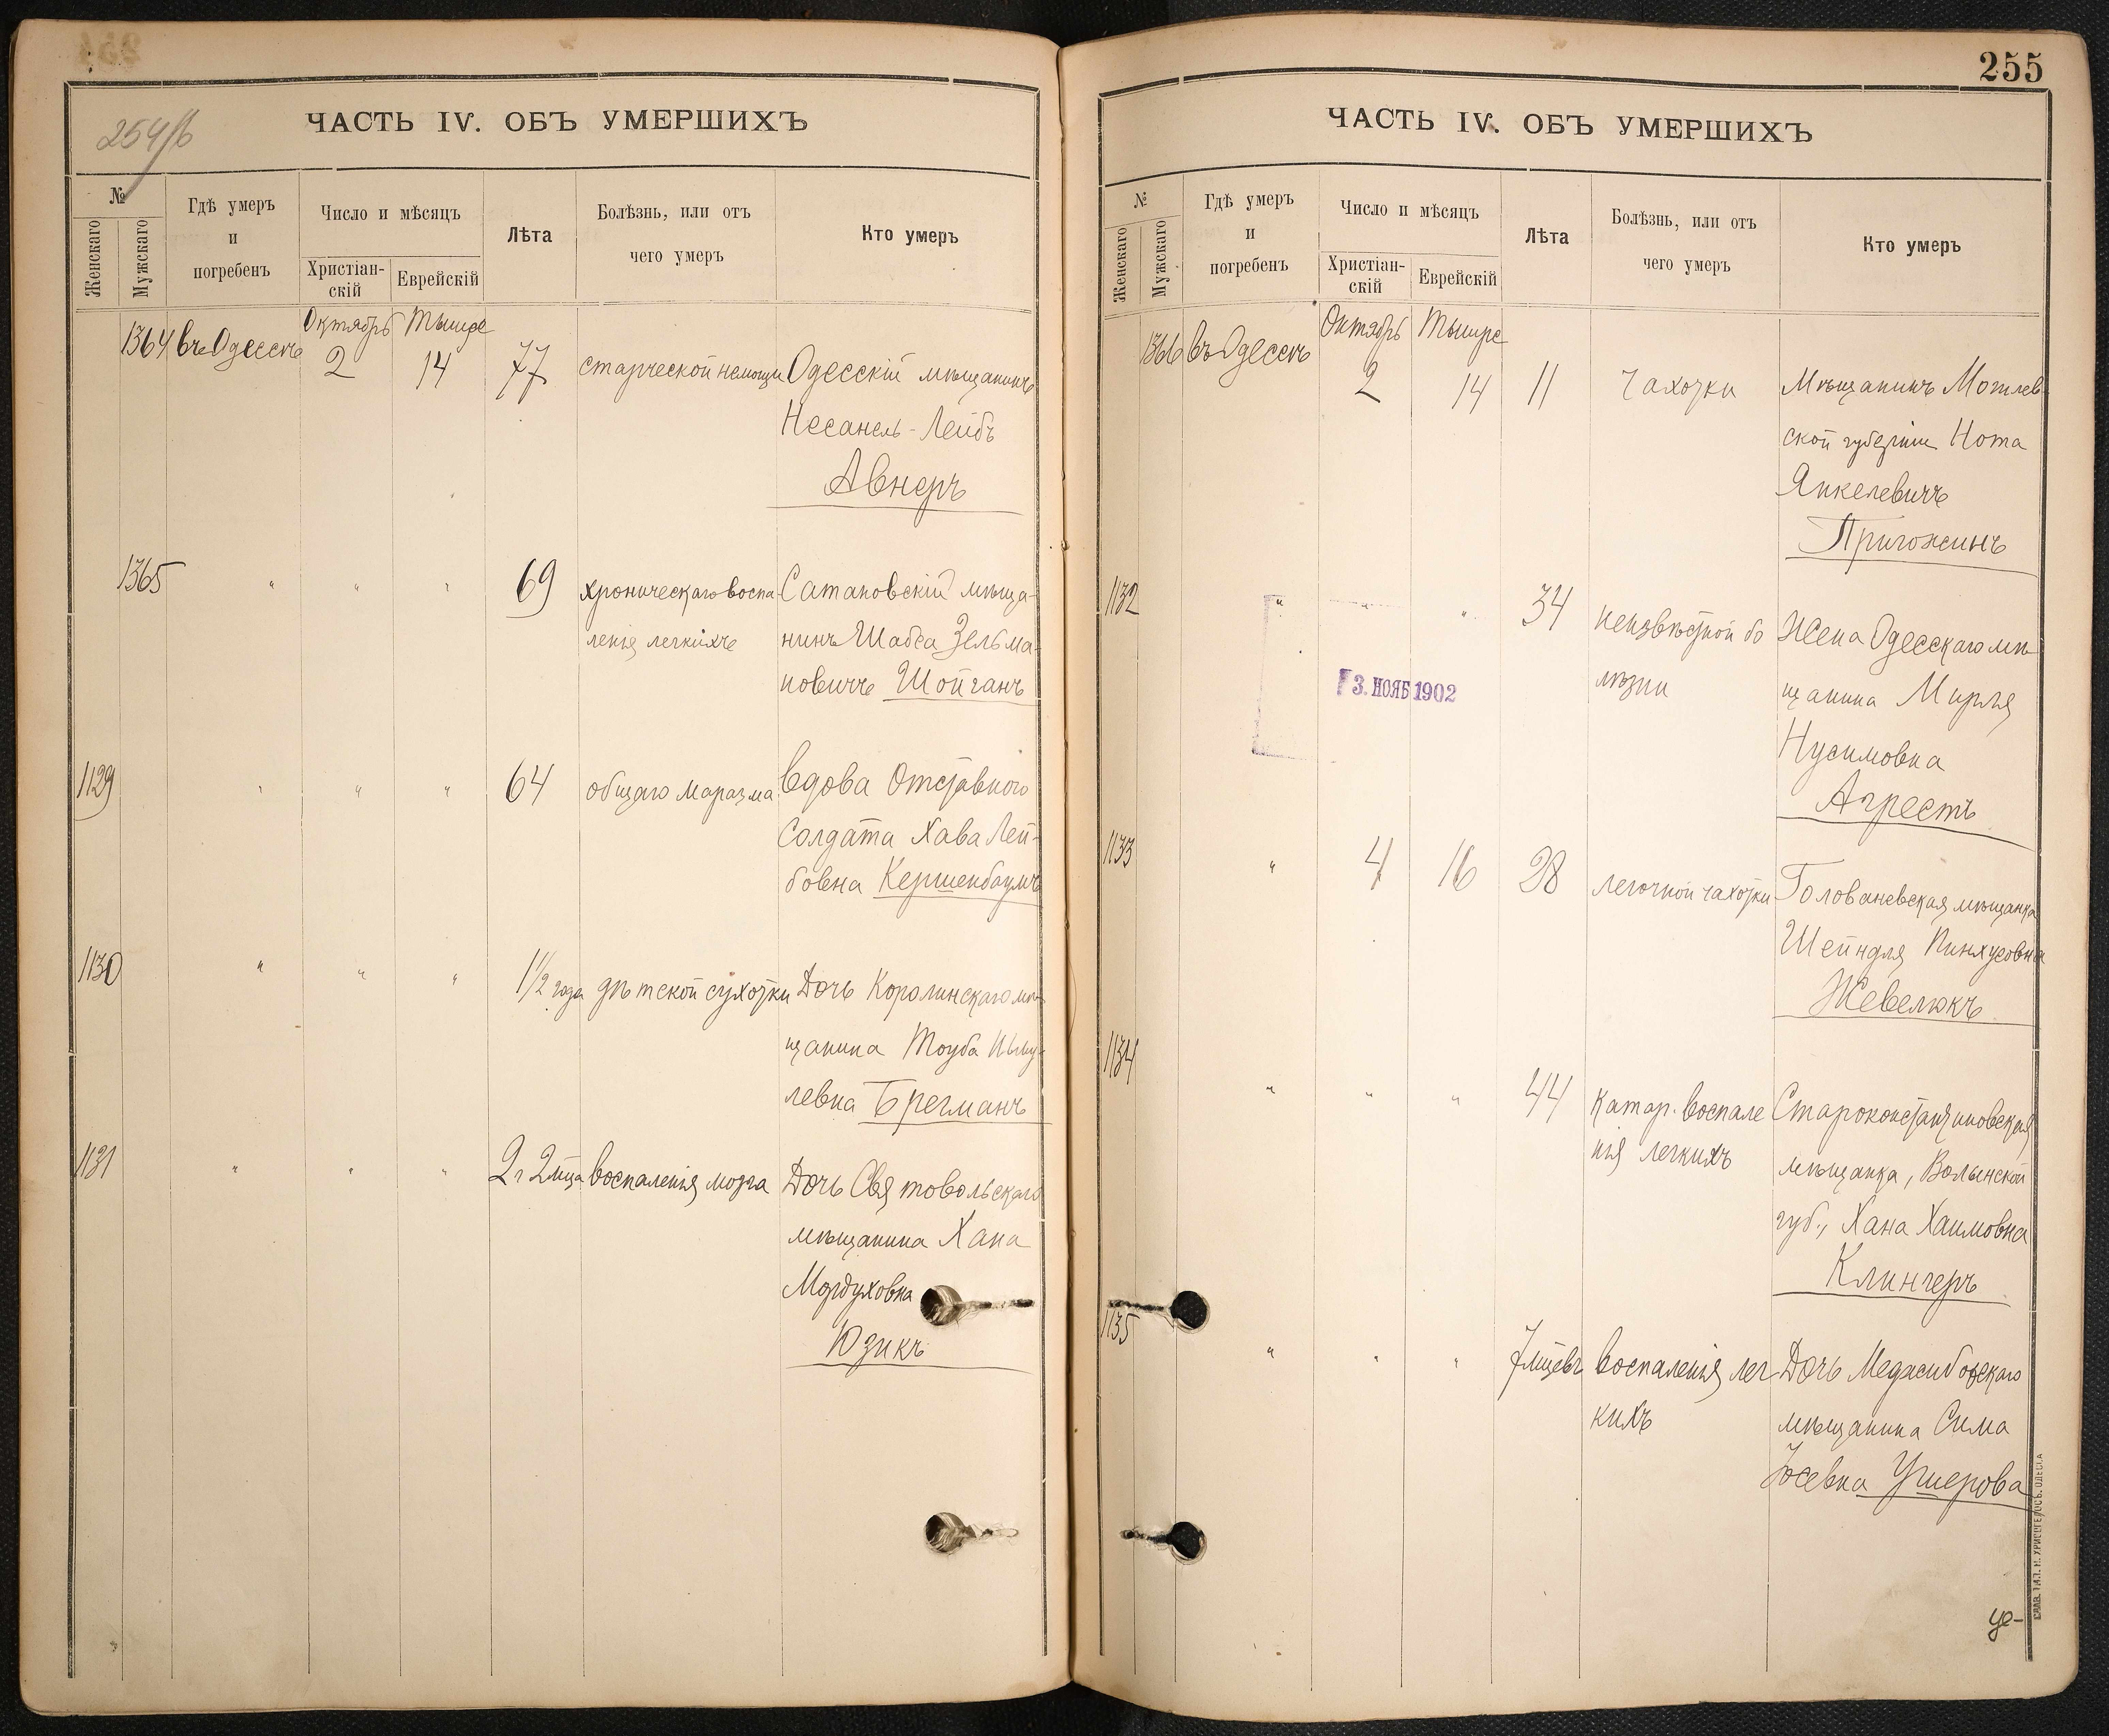 254/б
ЧАСТЬ IV. ОБЪ УМЕРШИХЪ
№
Женскаго
Мужскаго
Гдѣ умеръ
и
погребенъ
Число и мѣсяцъ
Христіан-
скій
Еврейскій
Лѣта
Болѣзнь, или отъ
чего умеръ
Кто умеръ
Октябрь Тышре
1364 въ Одессѣ 2 14 77 старческой немощи Одесскій мѣщанинъ
Несанель-Лейбъ
Авнеръ
1365 " " " 69 хроническаго воспа Сатановскій мѣща-
ленія легкихъ нинъ Шабса Зельма-
новичъ Шойганъ
1129 " " " 64 общаго маразма вдова Отставного
Солдата Хава Лей-
бовна Кершенбаумъ
1130 " " " 1½ года дѣтской сухотки Дочь Королинскаго мѣ-
щанина Тоуба
левна Брегманъ
1131 " " " 2 г 2 мца воспаленія мозга Дочь Святовольскаго
мѣщанина Хана
Мордуховна
Юзикъ
255
ЧАСТЬ IV. ОБЪ УМЕРШИХЪ
№
Женскаго
Мужскаго
Гдѣ умеръ
и
погребенъ
Число и мѣсяцъ
Христіан-
скій
Еврейскій
Лѣта
Болѣзнь, или отъ
чего умеръ
Кто умеръ
Октябрь Тышре
1366 въ Одессѣ 2 14 11 чахотки Мѣщанинъ Могилев
ской губерніи Нота
Янкелевичъ
Пригожинъ
1132 " " " 34 неизвѣстной бо Жена Одесскаго мѣ
лѣзни щанина Мирля
Нусимовна
Агрестъ
3. НОЯБ 1902
1133 " 4 16 28 легочной чахотки Голованевская мѣщанка
Шейндля Пинхусовна
Жевелюкъ
1134 " " " 44 катар. воспале Староконстантиновская
нія легкихъ мѣщанка, Волынской
губ., Хана Хаимовна
Клингеръ
1135 " " " 7 мцевъ воспаленія лег Дочь Меджибовскаго
кихъ мѣщанина Сима
Іосевна Ушерова